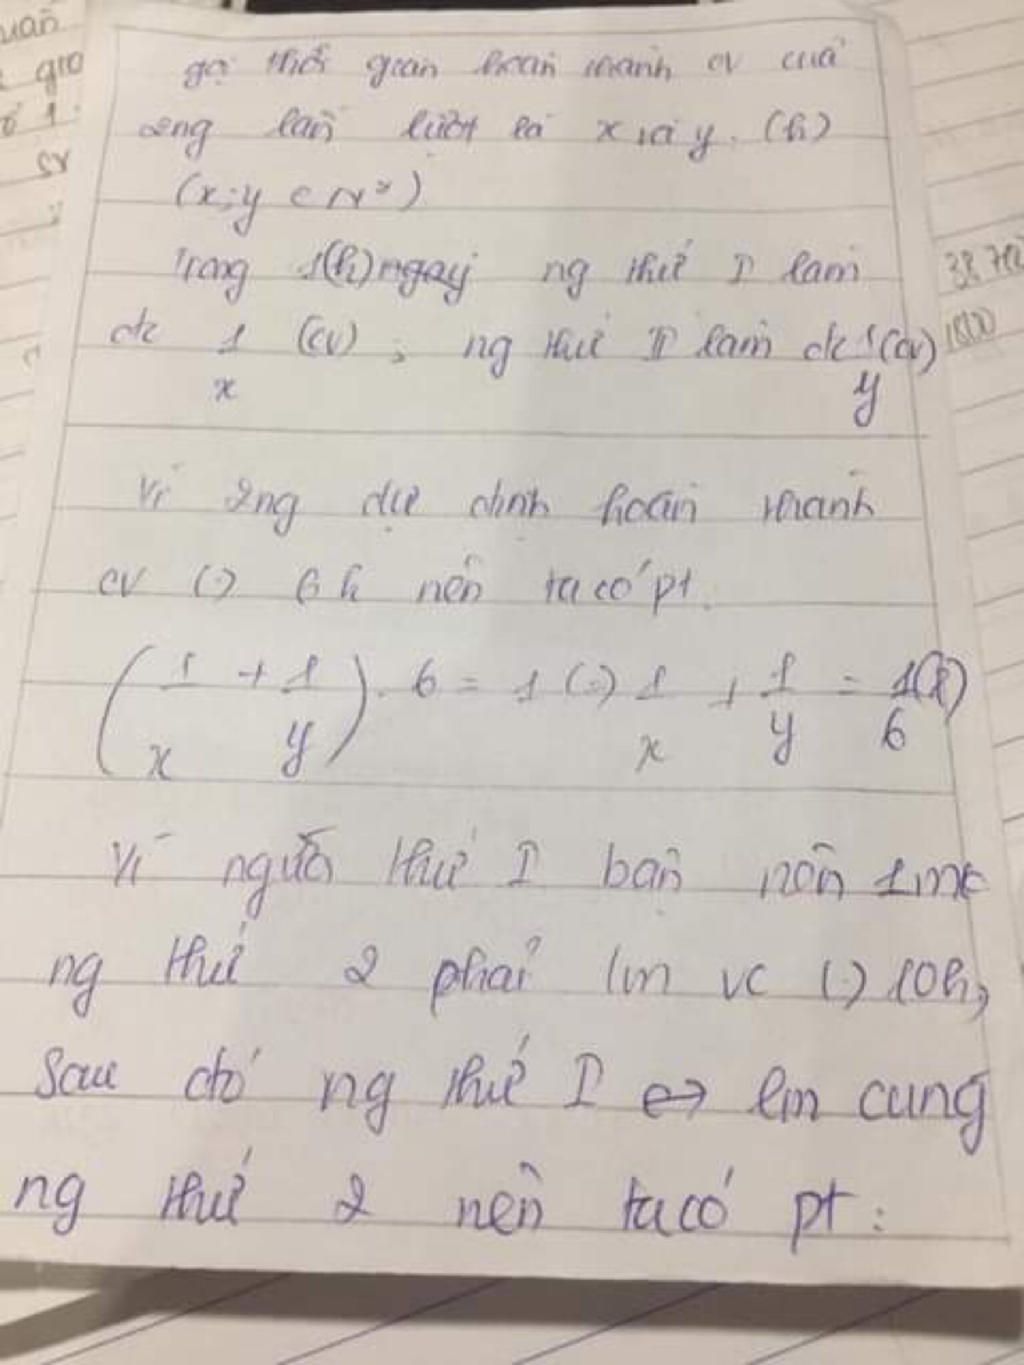 gọi thời gian hoàn thành cv của
2 ng lần lượt là x và y. (h)
(x;y ∈ N*)
Trong 1(h) ngay ng thứ I làm
đc 1/x (cv), ng thứ II làm đc 1/y (cv)
Vì 2 ng dự định hoàn thành
cv (.) 6h nên ta có pt.
(1/x + 1/y). 6 = 1 (=) 1/x + 1/y = 1/6
Vì người thứ I bận nên 1 mk
ng thứ 2 phải lm vc (.) 10h,
Sau đó ng thứ I ↔ lm cùng
ng thứ 2 nên ta có pt:
38
1800